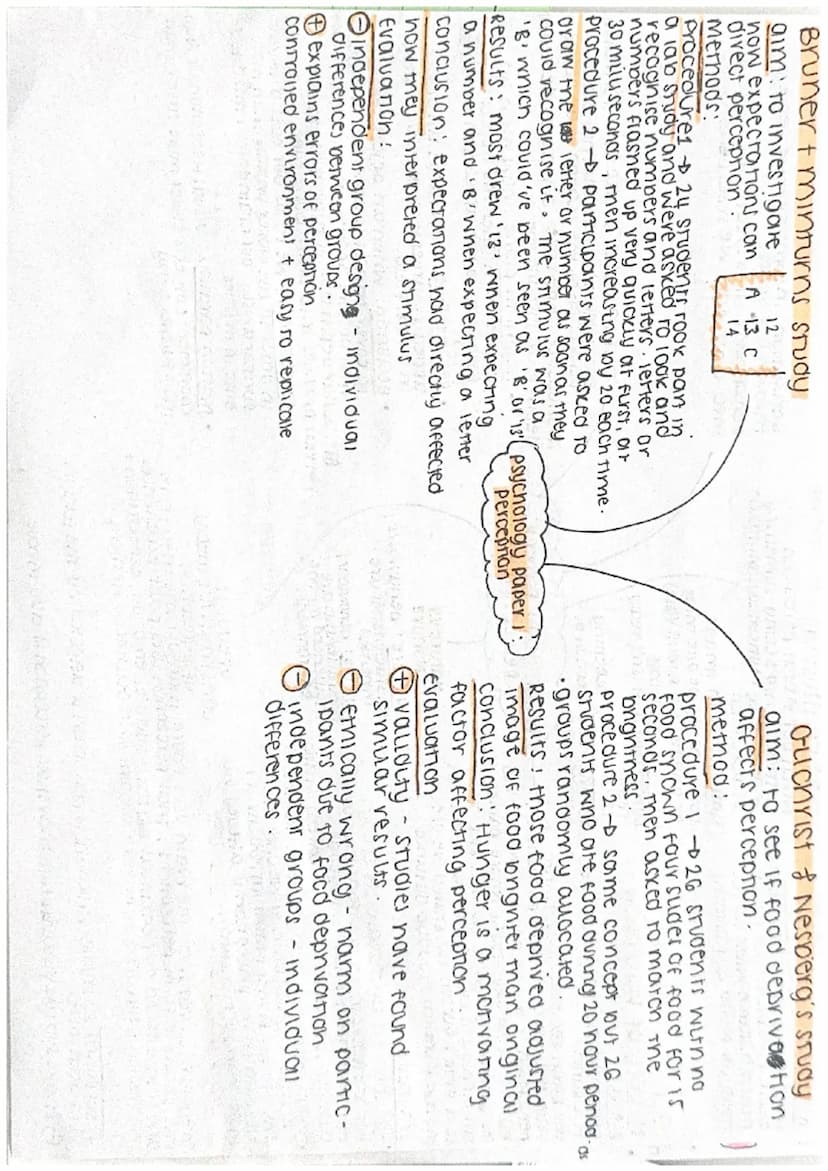 Bruner + minturns study
aim: to investigate
how expectations can
direct perception.
12
A 13 C
14
Methods:
procedure 1 → 24 students took part in
a lab study and were asked to look and
recognise numbers and letters. letters or
numbers flashed up very quickly at first, at
30 milliseconds, then increasing by 20 each time.
procedure 2 → participants were asked to
draw the letter or number as soon as they
could recognise it. The stimulus was a
'B' which could've been seen as 'B' or '13'
Results: most drew '13' when expecting
a number and 'B' when expecting a letter
conclusion: expectations had directly affected
how they interpreted a stimulus
Evaluation:
⊖ independent group designs - individual
differences between groups.
⊕ explains errors of perception
controlled environment + easy to replicate
psychology paper 1:
perception
Gilchrist & Nesberg's study
aim: to see if food deprivation
affects perception.
method:
procedure 1 → 26 students with no
food shown four slides of food for 15
seconds, then asked to match the
brightness
procedure 2 → same concept but 26
students who ate food during 20 hour period as
• groups randomly allocated.
Results: those food deprived adjusted
image of food brighter than original
conclusion: Hunger is a motivating
factor affecting perception.
evaluation
⊕ validity - studies have found
similar results.
⊖ Ethically wrong - harm on partic-
ipants due to food deprivation
⊖ independent groups - individual
differences.